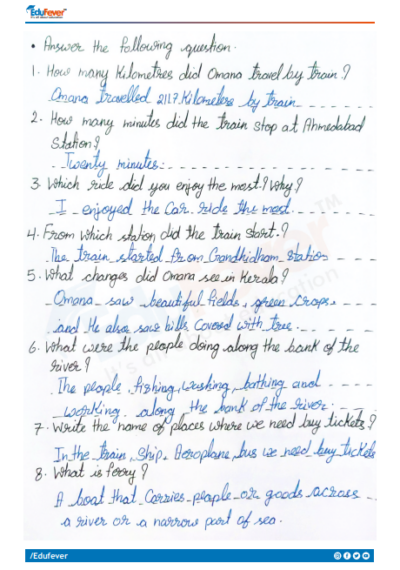 EduFever
• Answer the following question.
1. How many Kilometres did Omana travel by train?
Omana travelled 2117 Kilometers by train
2. How many minutes did the train stop at Ahmedabad
Station?
Twenty minutes.
3. Which ride did you enjoy the most? Why?
I enjoyed the Car ride the most.
4. From which station did the train start?
The train started from Gandhidham Station
5. What changes did Omana see in Kerala?
Omana saw beautiful fields, green crops,
and He also saw hills Covered with tree.
6. What were the people doing along the bank of the
river?
The people fishing, washing, bathing and
working along the bank of the river.
7. Write the name of places where we need buy tickets?
In the train, ship, Aeroplane, bus we need buy tickets
8. What is ferry?
A boat that Carries people or goods across
a river or a narrow part of sea.
/Edufever